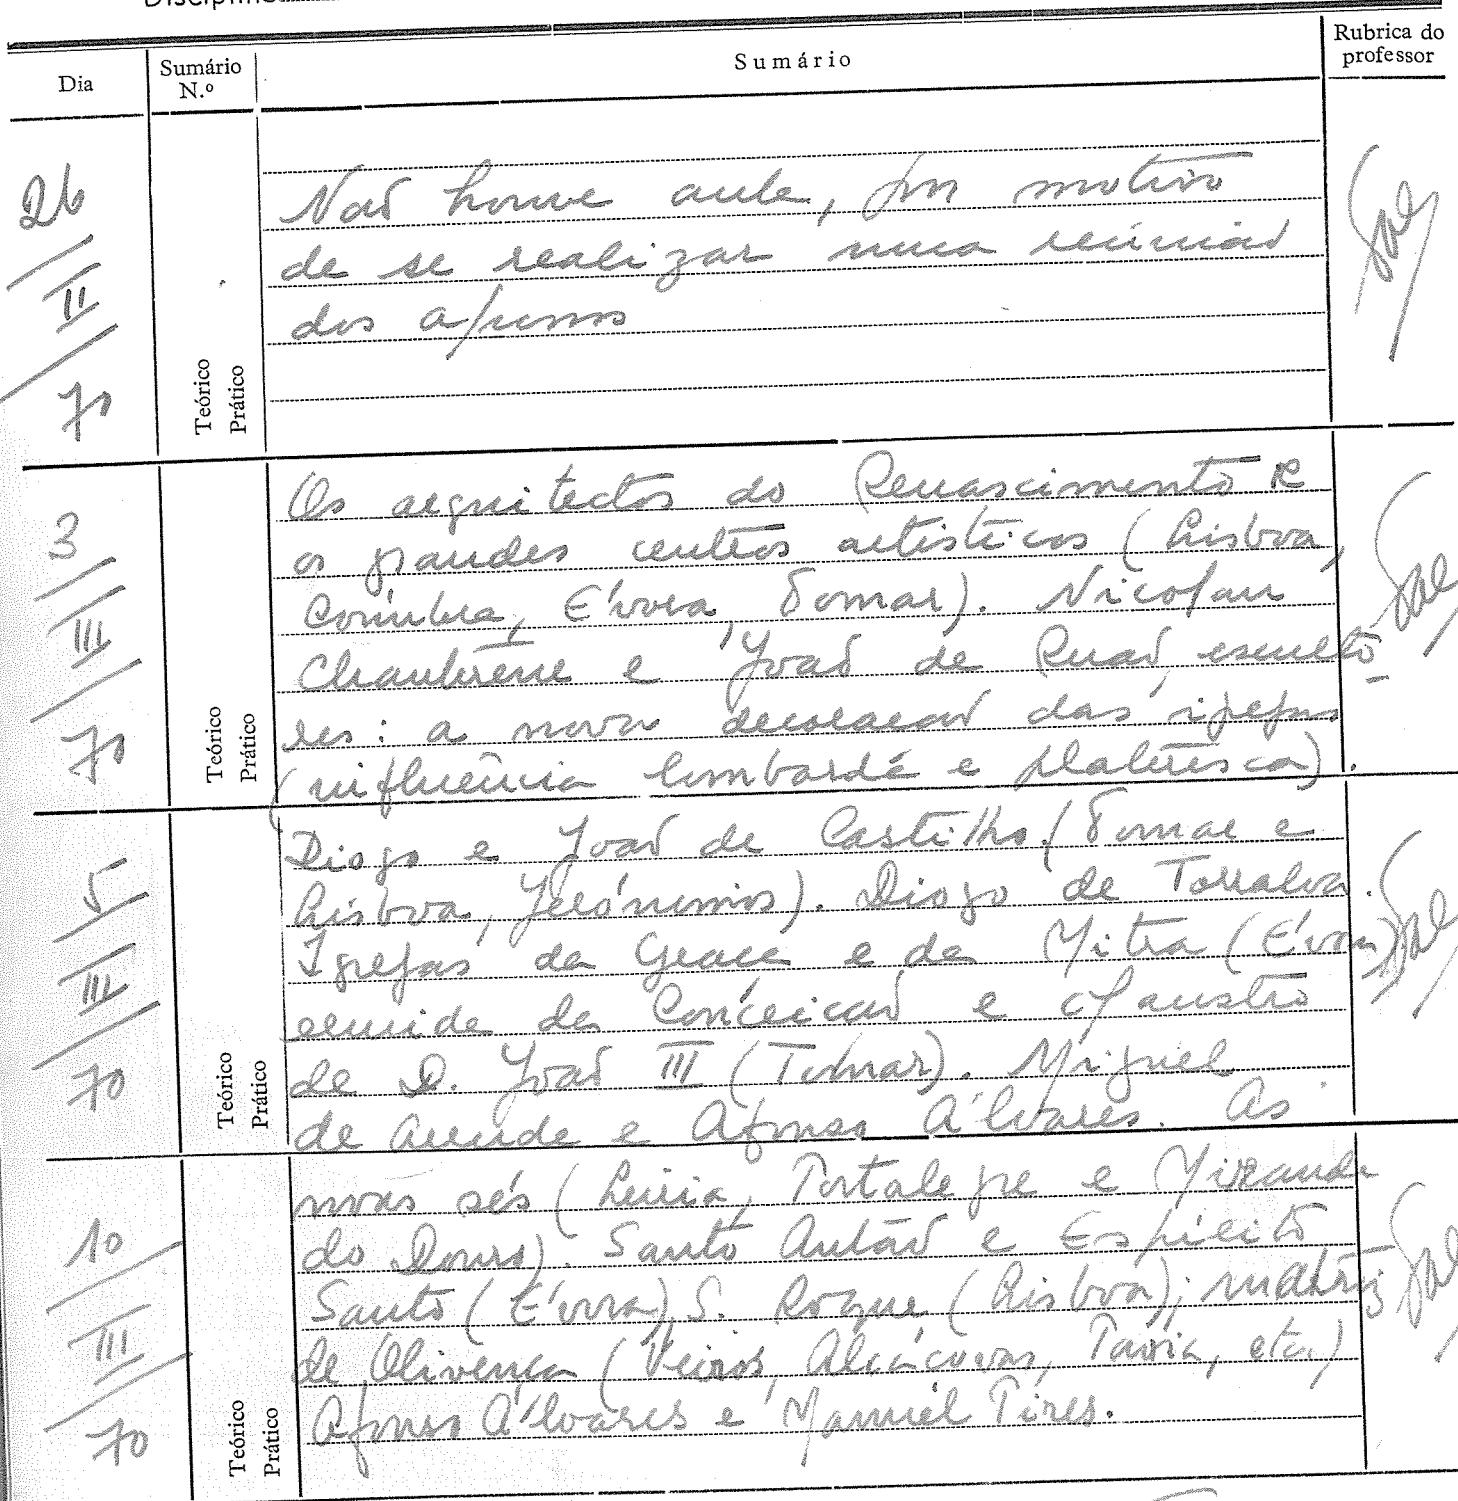 Dia
Sumário N.º
Sumário
Rubrica do professor
26/II/70
Teórico
Prático
Não houve aula, por motivo
de se realizar uma reunião
dos alunos
3/III/70
Teórico
Prático
Os arquitectos do Renascimento e
os grandes centros artísticos (Lisboa,
Coimbra, Évora, Tomar). Nicolau
Chanterène e João de Ruão, esculto-
res: a nova decoração das igrejas
(influência lombarda e plateresca).
5/III/70
Teórico
Prático
Diogo e João de Castilho (Tomar e
Lisboa, Jerónimos). Diogo de Torralva.
Igrejas da Graça e da Mitra (Évora),
ermida da Conceição e claustro
de D. João III (Tomar). Miguel
de Arruda e Afonso Álvares. As
10/III/70
Teórico
Prático
novas sés (Leiria, Portalegre e Miranda
do Douro). Santo Antão e Espírito
Santo (Évora), S. Roque (Lisboa); matriz
de Olivença (Veiros, Alcáçovas, Tavira, etc.)
Afonso Álvares e Manuel Pires.